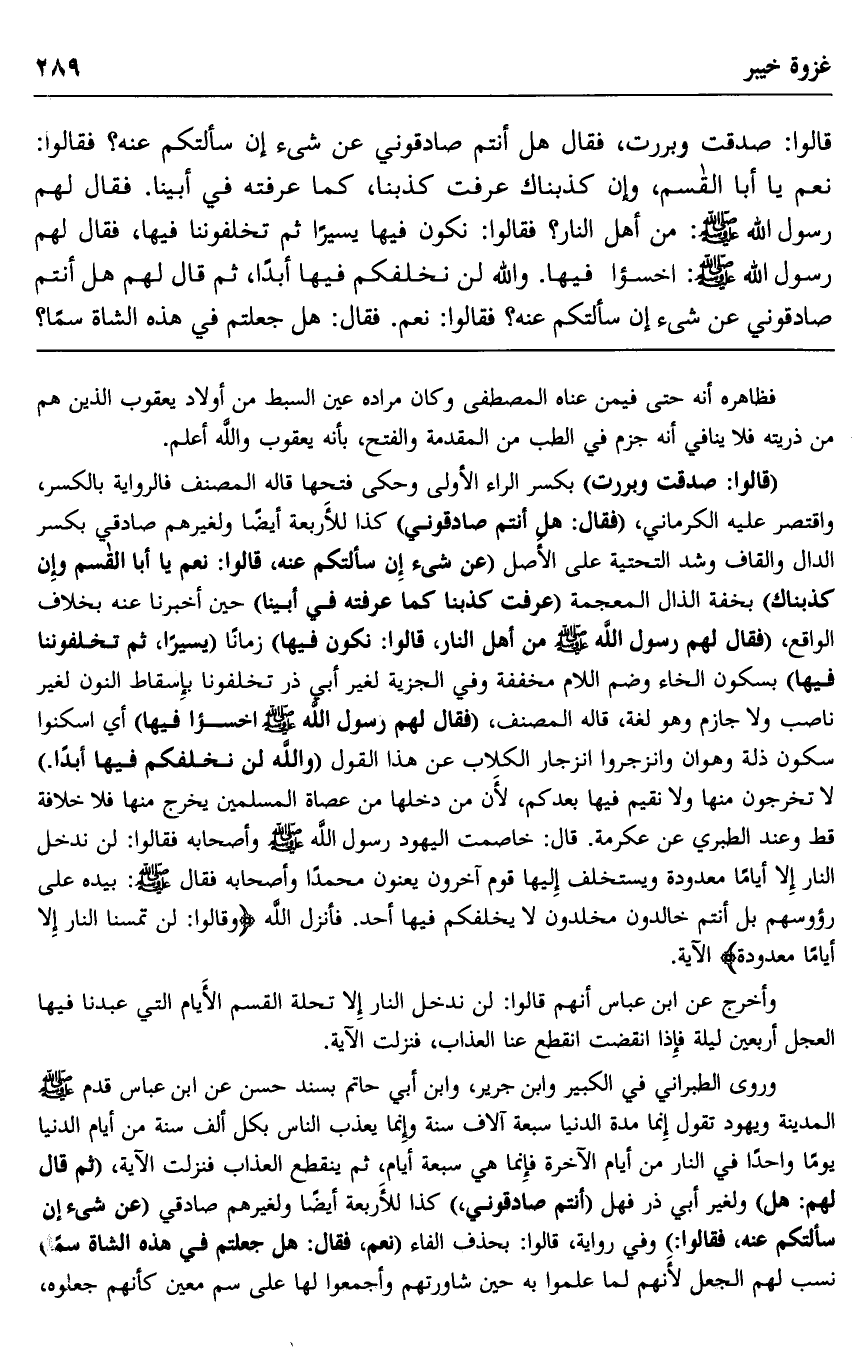 غزوة خيبر ٢٨٩
قالوا: صدقت وبررت، فقال هل أنتم صادقوني عن شىء إن سألتكم عنه؟ فقالوا:
نعم يا أبا القٰسم، وإن كذبناك عرفت كذبنا، كما عرفته في أبينا. فقال لهم
رسول الله ﷺ: من أهل النار؟ فقالوا: نكون فيها يسيرًا ثم تخلفوننا فيها، فقال لهم
رسول الله ﷺ: اخسؤا فيها. والله لن نخلفكم فيها أبدًا، ثم قال لهم هل أنتم
صادقوني عن شىء إن سألتكم عنه؟ فقالوا: نعم. فقال: هل جعلتم في هذه الشاة سمًا؟
فظاهره أنه حتى فيمن عناه المصطفى وكان مراده عين السبط من أولاد يعقوب الذين هم
من ذريته فلا ينافي أنه جزم في الطب من المقدمة والفتح، بأنه يعقوب واللَّه أعلم.
(قالوا: صدقت وبررت) بكسر الراء الأولى وحكى فتحها قاله المصنف فالرواية بالكسر،
واقتصر عليه الكرماني، (فقال: هل أنتم صادقوني) كذا للأَربعة أيضًا ولغيرهم صادقي بكسر
الدال والقاف وشد التحتية على الأَصل (عن شىء إِن سألتكم عنه، قالوا: نعم يا أبا القٰسم وإن
كذبناك) بخفة الذال المعجمة (عرفت كذبنا كما عرفته في أبينا) حين أخبرنا عنه بخلاف
الواقع، (فقال لهم رسول اللَّه ﷺ من أهل النار، قالوا: نكون فيها) زمانًا (يسيرًا، ثم تخلفوننا
فيها) بسكون الخاء وضم اللام مخففة وفي الجزية لغير أبي ذر تخلفونا بإِسقاط النون لغير
ناصب ولا جازم وهو لغة، قاله المصنف، (فقال لهم رسول اللَّه ﷺ اخسؤا فيها) أي اسكنوا
سكون ذلة وهوان وانزجروا انزجار الكلاب عن هذا القول (واللَّه لن نخلفكم فيها أبدًا.)
لا تخرجون منها ولا نقيم فيها بعدكم، لأَن من دخلها من عصاة المسلمين يخرج منها فلا خلافة
قط وعند الطبري عن عكرمة. قال: خاصمت اليهود رسول اللَّه ﷺ وأصحابه فقالوا: لن ندخل
النار إِلا أيامًا معدودة ويستخلف إِليها قوم آخرون يعنون محمدًا وأصحابه فقال ﷺ: بيده على
رؤوسهم بل أنتم خالدون مخلدون لا يخلفكم فيها أحد. فأنزل اللَّه ﴿وقالوا: لن تمسنا النار إِلا
أيامًا معدودة﴾ الآية.
وأخرج عن ابن عباس أنهم قالوا: لن ندخل النار إِلا تحلة القسم الأَيام التي عبدنا فيها
العجل أربعين ليلة فإِذا انقضت انقطع عنا العذاب، فنزلت الآية.
وروى الطبراني في الكبير وابن جرير، وابن أبي حاتم بسند حسن عن ابن عباس قدم ﷺ
المدينة ويهود تقول إِنما مدة الدنيا سبعة آلاف سنة وإِنما يعذب الناس بكل ألف سنة من أيام الدنيا
يومًا واحدًا في النار من أيام الآخرة فإِنما هي سبعة أيام، ثم ينقطع العذاب فنزلت الآية، (ثم قال
لهم: هل) ولغير أبي ذر فهل (أنتم صادقوني،) كذا للأَربعة أيضًا ولغيرهم صادقي (عن شىء إِن
سألتكم عنه، فقالوا:) وفي رواية، قالوا: بحذف الفاء (نعم، فقال: هل جعلتم في هذه الشاة سمًا)
نسب لهم الجعل لأَنهم لما علموا به حين شاورتهم وأجمعوا لها على سم معين كأنهم جعلوه،